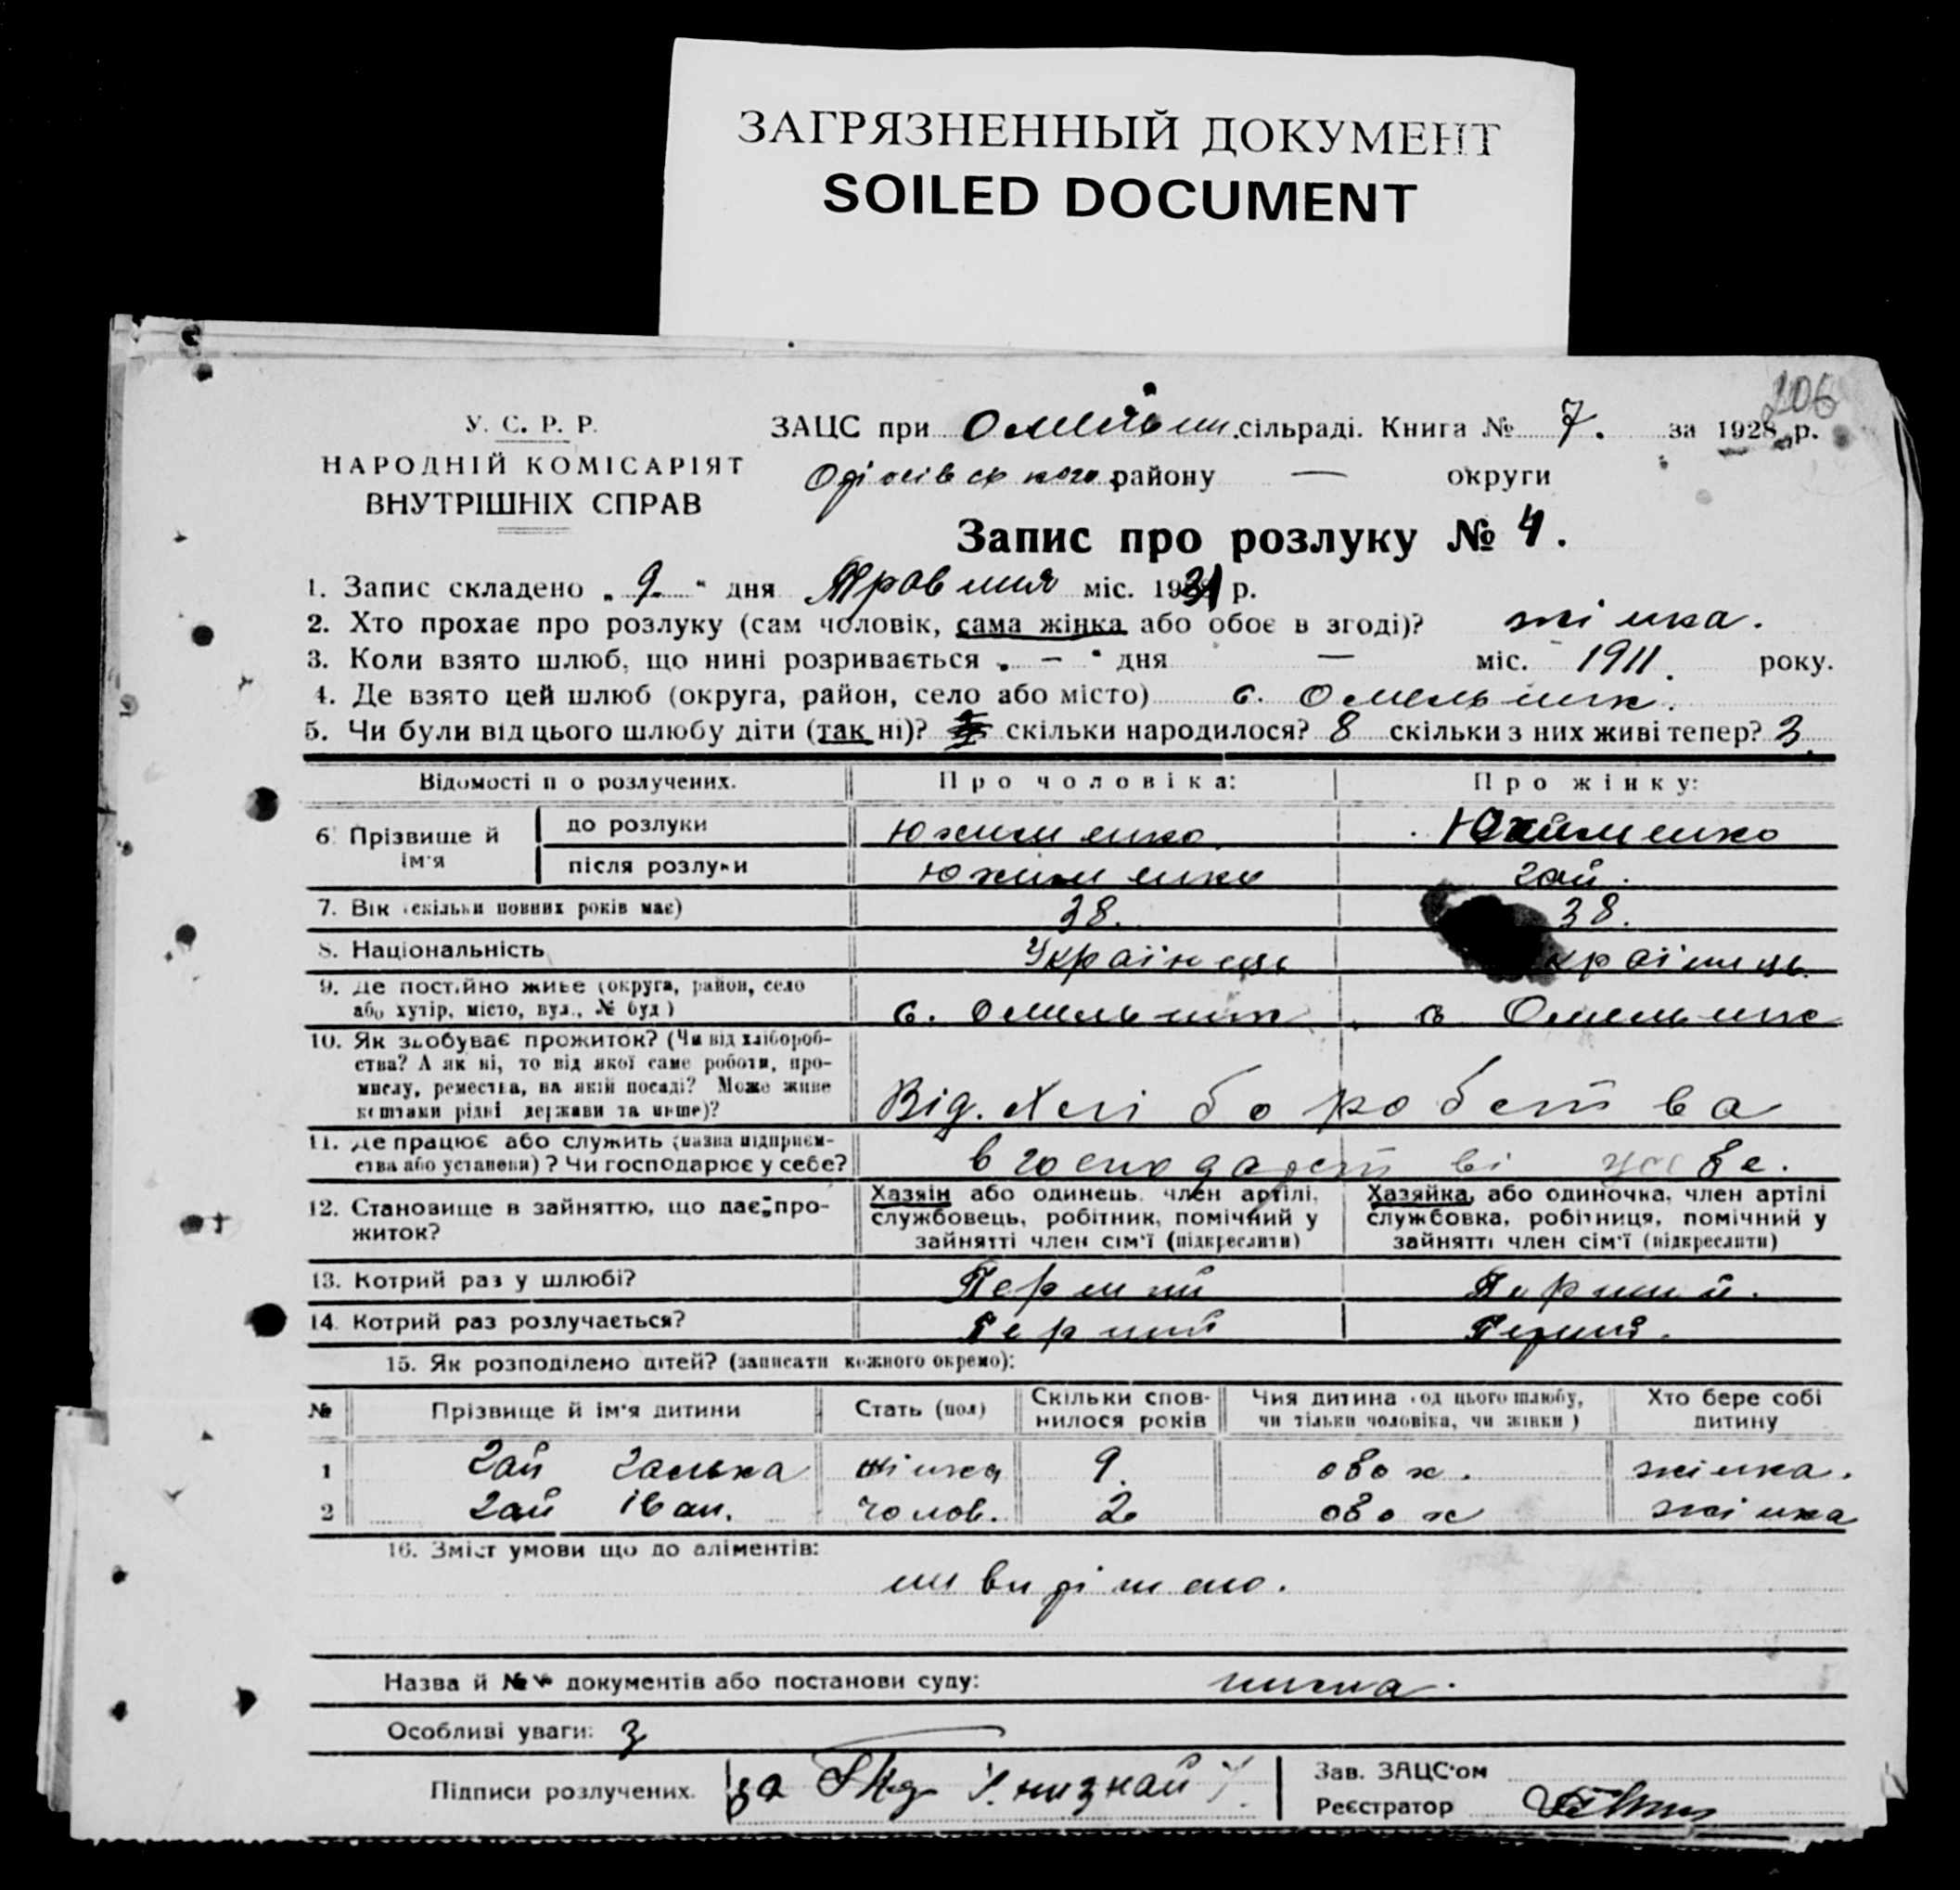 ЗАГРЯЗНЕННЫЙ ДОКУМЕНТ
SOILED DOCUMENT
206
У. С. Р. Р.
НАРОДНІЙ КОМІСАРІЯТ
ВНУТРІШНІХ СПРАВ
ЗАЦС при Омельн. сільраді. Книга № 7. за 1928 р.
району — округи
Запис про розлуку № 4.
1. Запис складено „ 9 " дня Травня міс. 1931 р.
2. Хто прохає про розлуку (сам чоловік, сама жінка або обоє в згоді)? жінка.
3. Коли взято шлюб, що нині розривається „ — " дня — міс. 1911. року.
4. Де взято цей шлюб (округа, район, село або місто) с. Омельник.
5. Чи були від цього шлюбу діти (так ні)? скільки народилося? 8 скільки з них живі тепер? 3.
Відомості п о розлучених. Про чоловіка: Про жінку:
6. Прізвище й ім'я до розлуки Юхименко. Юхименко
після розлуки Юхименко Гай.
7. Вік (скільки повних років має) 38. 38.
8. Національність Українець країнець.
9. Де постійно живе (округа, район, село
або хутір, місто, вул., № буд) с. Омельник с Омельник
10. Як здобуває прожиток? (Чи від хлібороб-
ства? А як ні, то від якої саме роботи, про-
мислу, ремества, на якій посаді? Може живе
коштами рідні держави та инше)? Від. Хліборобства
11. Де працює або служить (назва підприєм-
ства або установи)? Чи господарює у себе? в господарстві у себе.
12. Становище в зайняттю, що дає про-
житок?
Хазяін або одинець, член артілі,
службовець, робітник, помічний у
зайнятті член сім'ї (підкреслити)
Хазяйка, або одиночка, член артілі
службовка, робітниця, помічний у
зайнятті член сім'ї (підкреслити)
13. Котрий раз у шлюбі? Перший Перший.
14. Котрий раз розлучається? Перший Перший.
15. Як розподілено дітей? (записати кожного окремо):
№ Прізвище й ім'я дитини Стать (пол) Скільки спов-
нилося років Чия дитина (од цього шлюбу,
чи тільки чоловіка, чи жінки) Хто бере собі
дитину
1 Гай Галька жінка 9. обох. жінка.
2 Гай Іван. чолов. 2 обох жінка
16. Зміст умови що до аліментів:
Назва й №№ документів або постанови суду: нима.
Особливі уваги: З
Підписи розлучених. за
Зав. ЗАЦС'ом
Реєстратор